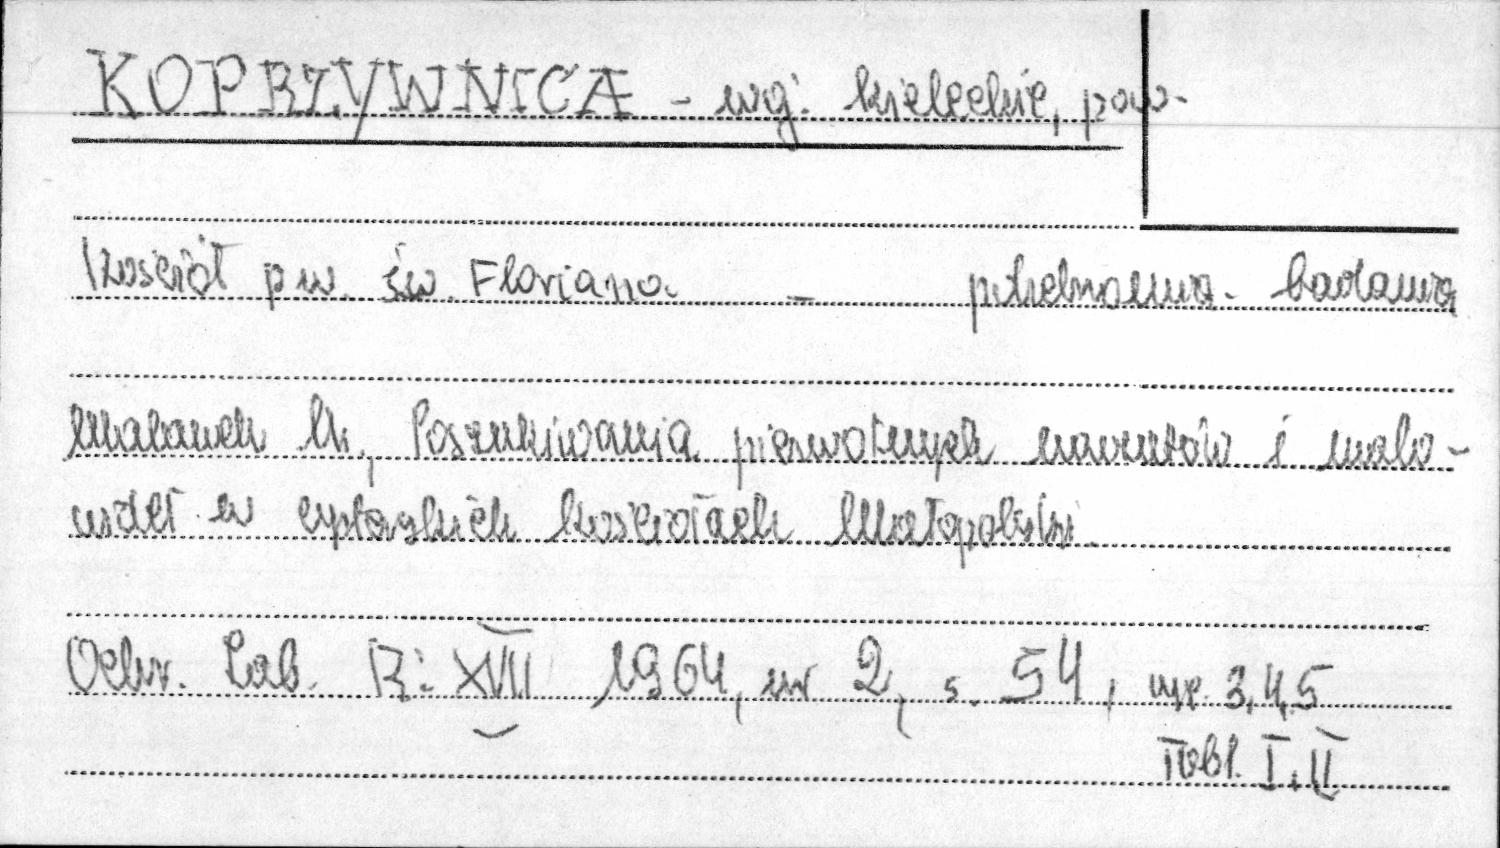 KOPRZYWNICA - woj. kieleckie, pow.
Kościół p.w. św. Floriana - polichromia - badania
M., Poszukiwania pierwotnych nawarstw i malo-
wideł w cysterskich kościołach Małopolski.
Ochr. Zab. R: XVII 1964, nr 2, s. 54, ryc. 3,4,5
Tabl. I, II